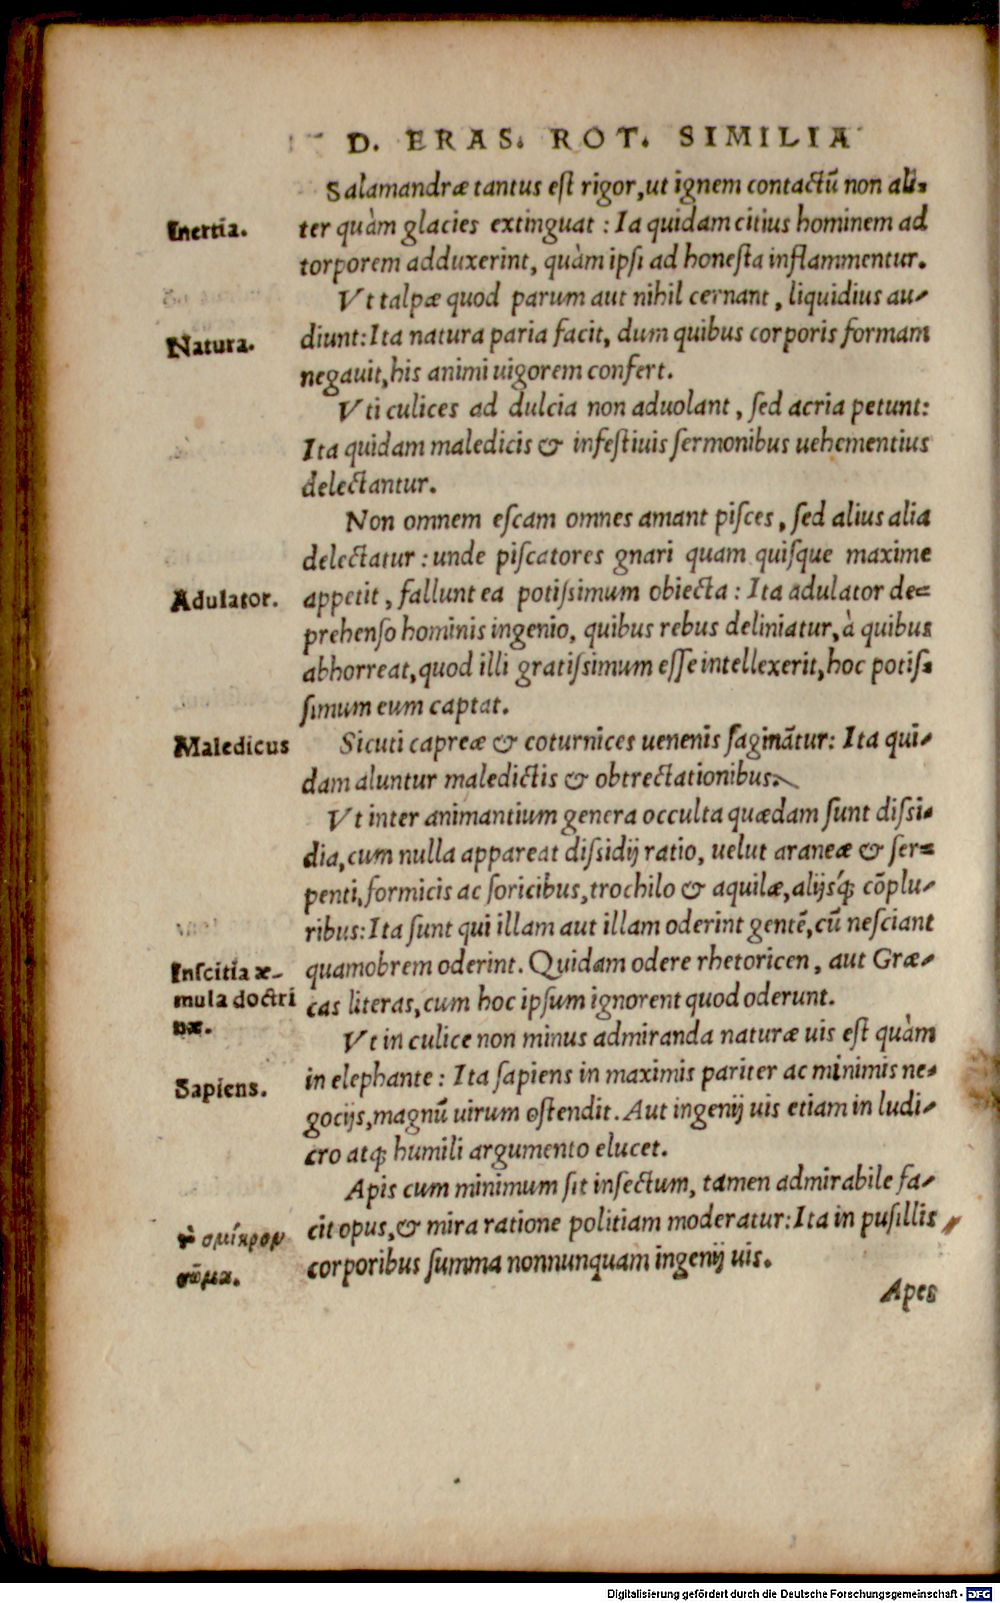 D. ERAS. ROT. SIMILIA
Salamandræ tantus eſt rigor, ut ignem contactū non ali-
Inertia.
ter quàm glacies extinguat : Ia quidam citius hominem ad
torporem adduxerint, quàm ipſi ad honeſta inflammentur.
Vt talpæ quod parum aut nihil cernant, liquidius au-
Natura.
diunt: Ita natura paria facit, dum quibus corporis formam
negauit, his animi uigorem confert.
Vti culices ad dulcia non aduolant, ſed acria petunt:
Ita quidam maledicis & infeſtiuis ſermonibus uehementius
delectantur.
Non omnem eſcam omnes amant piſces, ſed alius alia
delectatur : unde piſcatores gnari quam quiſque maxime
Adulator.
appetit, fallunt ea potiſsimum obiecta : Ita adulator de=
prehenſo hominis ingenio, quibus rebus deliniatur, à quibus
abhorreat, quod illi gratiſsimum eſſe intellexerit, hoc potiſ-
ſimum eum captat.
Maledicus
Sicuti capreæ & coturnices uenenis ſaginātur: Ita qui-
dam aluntur maledictis & obtrectationibus.
Vt inter animantium genera occulta quædam ſunt diſsi-
dia, cum nulla appareat diſsidij ratio, uelut araneæ & ſer=
penti, formicis ac ſoricibus, trochilo & aquilæ, alijsq́; cōplu-
ribus: Ita ſunt qui illam aut illam oderint gentē, cū neſciant
Inſcitia æ-
mula doctri
næ.
quamobrem oderint. Quidam odere rhetoricen, aut Græ-
cas literas, cum hoc ipſum ignorent quod oderunt.
Vt in culice non minus admiranda naturæ uis eſt quàm
Sapiens.
in elephante : Ita ſapiens in maximis pariter ac minimis ne-
gocijs, magnū uirum oſtendit. Aut ingenij uis etiam in ludi-
cro atq; humili argumento elucet.
Apis cum minimum ſit inſectum, tamen admirabile fa-
σμίκρον
σῶμα.
cit opus, & mira ratione politiam moderatur: Ita in puſillis
corporibus ſumma nonnunquam ingenij uis.
Apes
Digitalisierung gefördert durch die Deutsche Forschungsgemeinschaft - DFG